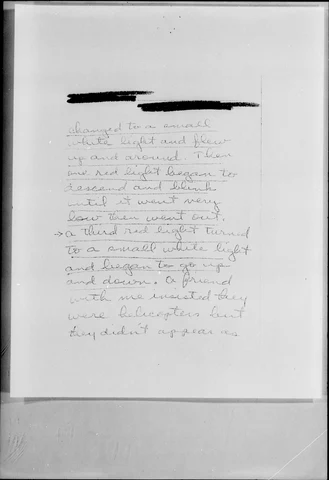 changed to a small
white light and flew
up and around. Then
one red light began to
descend and blink
until it went very
low then went out.
→ a third red light turned
to a small white light
and began to go up
and down. A friend
with me insisted they
were helicopters but
they didn't appear as